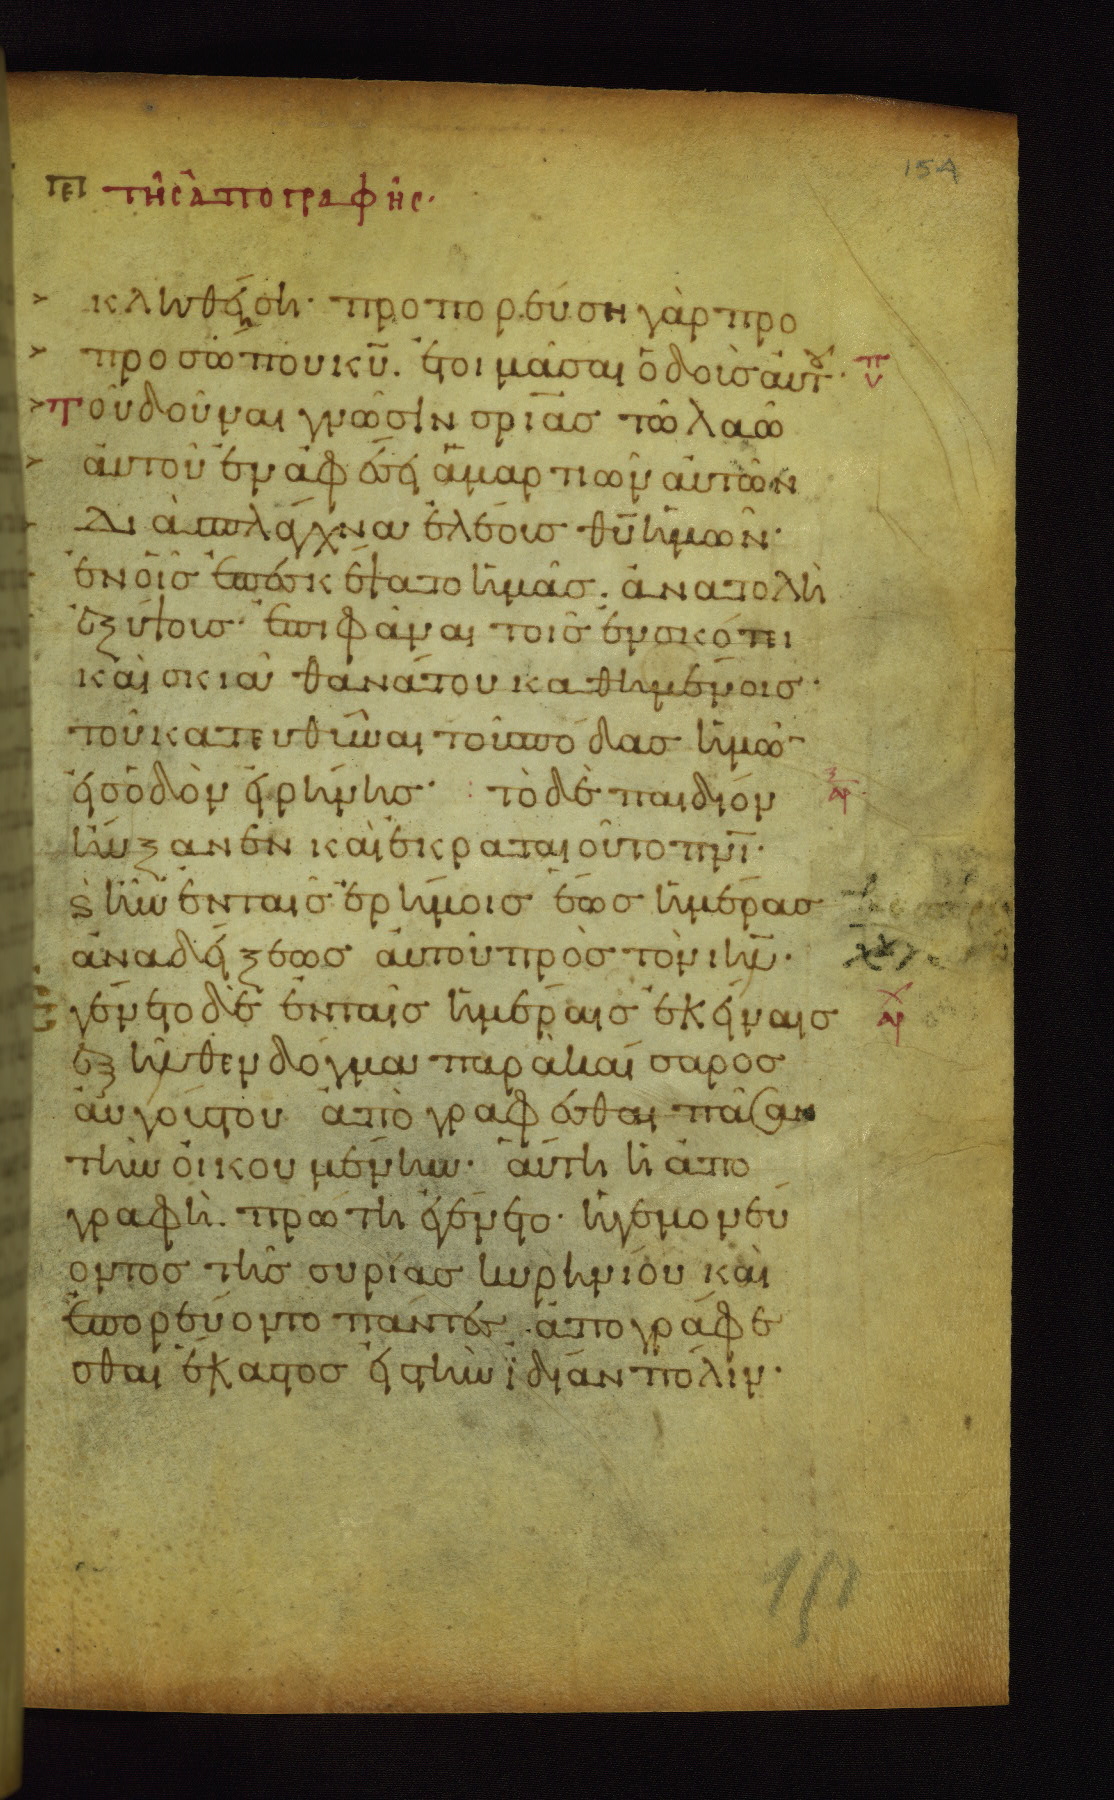 154
πε τῆς ἀπογραφῆς·
κληθήση· προπορεύση γὰρ προ
προσώπου κυ̅. ἑτοιμάσαι ὁδοὺς αὐτ·
Τοῦ δοῦναι γνῶσιν σρι̅ας τῶ λαῶ
αὐτοῦ ἐν ἀφέσει ἁμαρτιῶν αὐτῶν
Διὰ σπλάγχνα ἐλέους θυ̅ ἡμῶν·
ἐν οἷς ἐπεσκέψατο ἡμᾶς. ἀνατολὴ
ἐξ ὕψους· ἐπιφάναι τοῖς ἐν σκότει
καὶ σκιᾶ θανάτου καθημένοις·
τοῦ κατευθῦναι τοὺς πόδας ἡμῶ
εἰς ὁδὸν εἰρήνης· τὸ δὲ παιδίον
ηὔξανεν καὶ ἐκραταιοῦτο πνι̅·
ϗ ἦν ἐν ταῖς ἐρήμοις ἕως ἡμέρας
ἀναδείξεως αὐτοῦ πρὸς τὸν ιη̅λ·
Ἐγένετο δὲ ἐν ταῖς ἡμέραις ἐκείναις
ἐξῆλθεν δόγμα παρὰ καίσαρος
αὐγούστου ἀπογραφέσθαι πᾶσαν
τὴν οἰκουμένην· αὕτη ἡ ἀπο
γραφὴ. πρώτη ἐγένετο· ἡγεμονεύ
οντος τῆς συρίας κυρηνίου καὶ
ἐπορεύοντο πάντες ἀπογράφε
σθαι ἕκαστος εἰς τὴν ἰδίαν πόλιν·